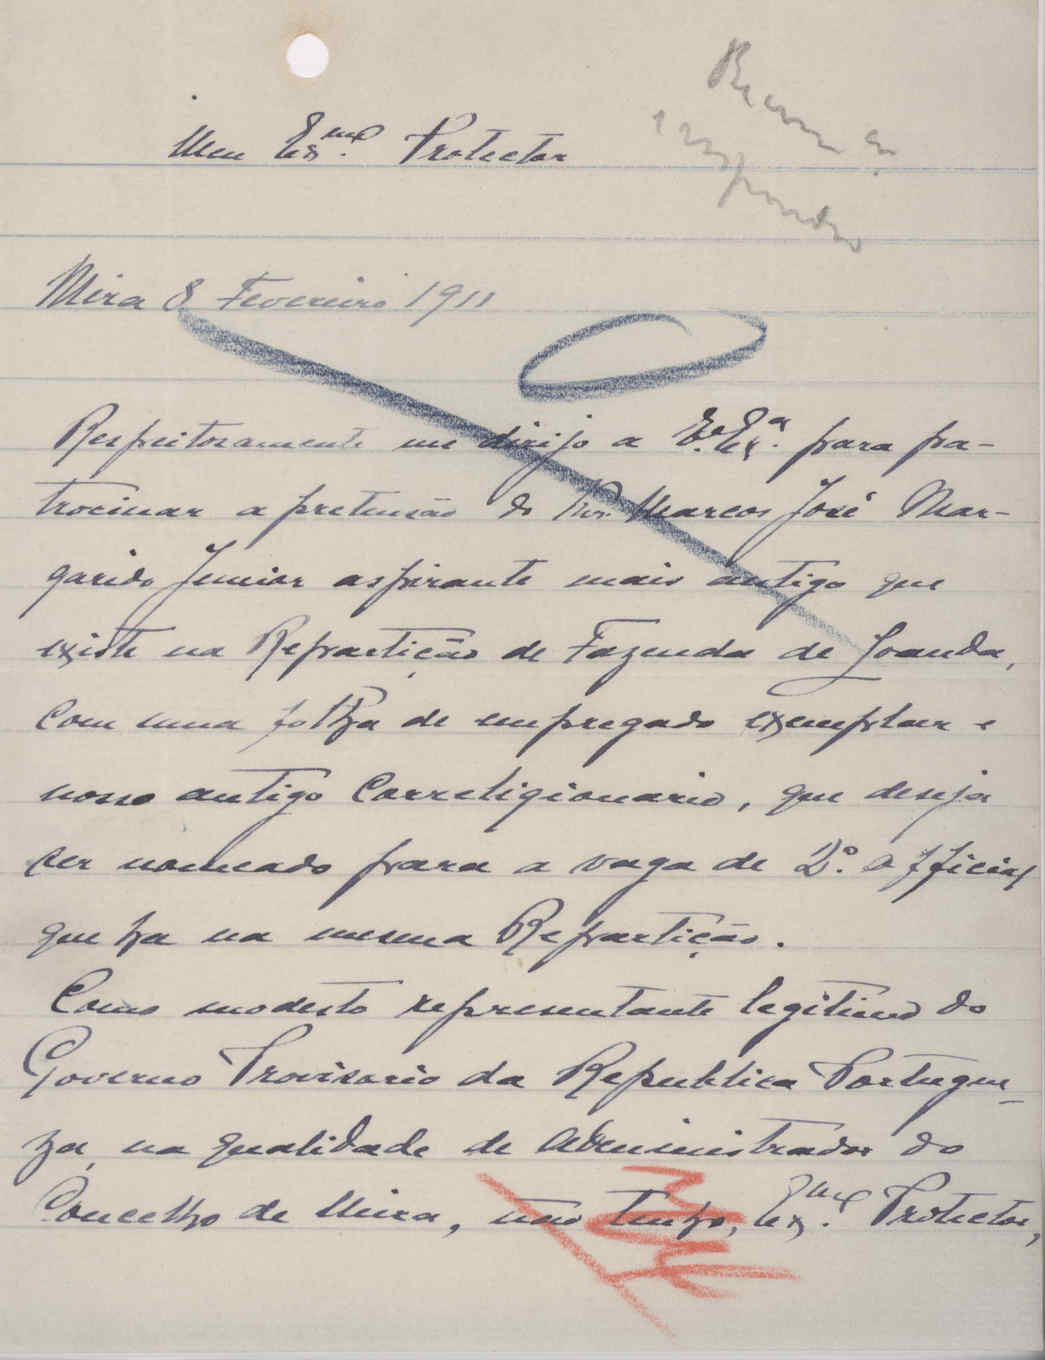 Meu Exmo. Protector
respondeo
Mira 8 Fevereiro 1911
Respeitosamente me dirijo a V. Exa. para pa-
trocinar a pretensão do Marcos José Mar-
garido Junior aspirante mais antigo que
existe na Repartição de Fazenda de Loanda,
com uma folha de empregado exemplar e
nosso antigo Correligionario, que deseja
ser nomeado para a vaga de 2.º Official
que ha na mesma Repartição.
Como modesto representante legitimo do
Governo Provisorio da Republica Portugue-
za, na qualidade de Administrador do
Concelho de Mira, não tenho, Exmo. Protector,